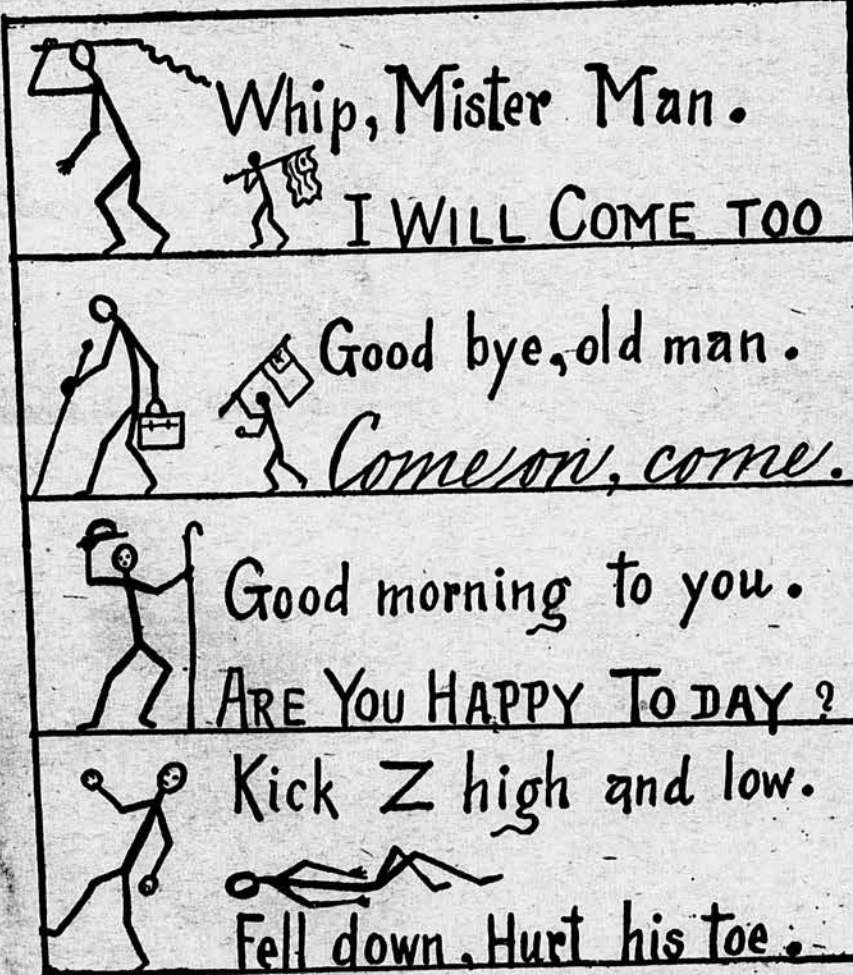 Whip, Mister Man.
I WILL COME TOO
Good bye, old man.
Come on, come.
Good morning to you.
ARE YOU HAPPY TO DAY ?
Kick Z high and low.
Fell down. Hurt his toe.